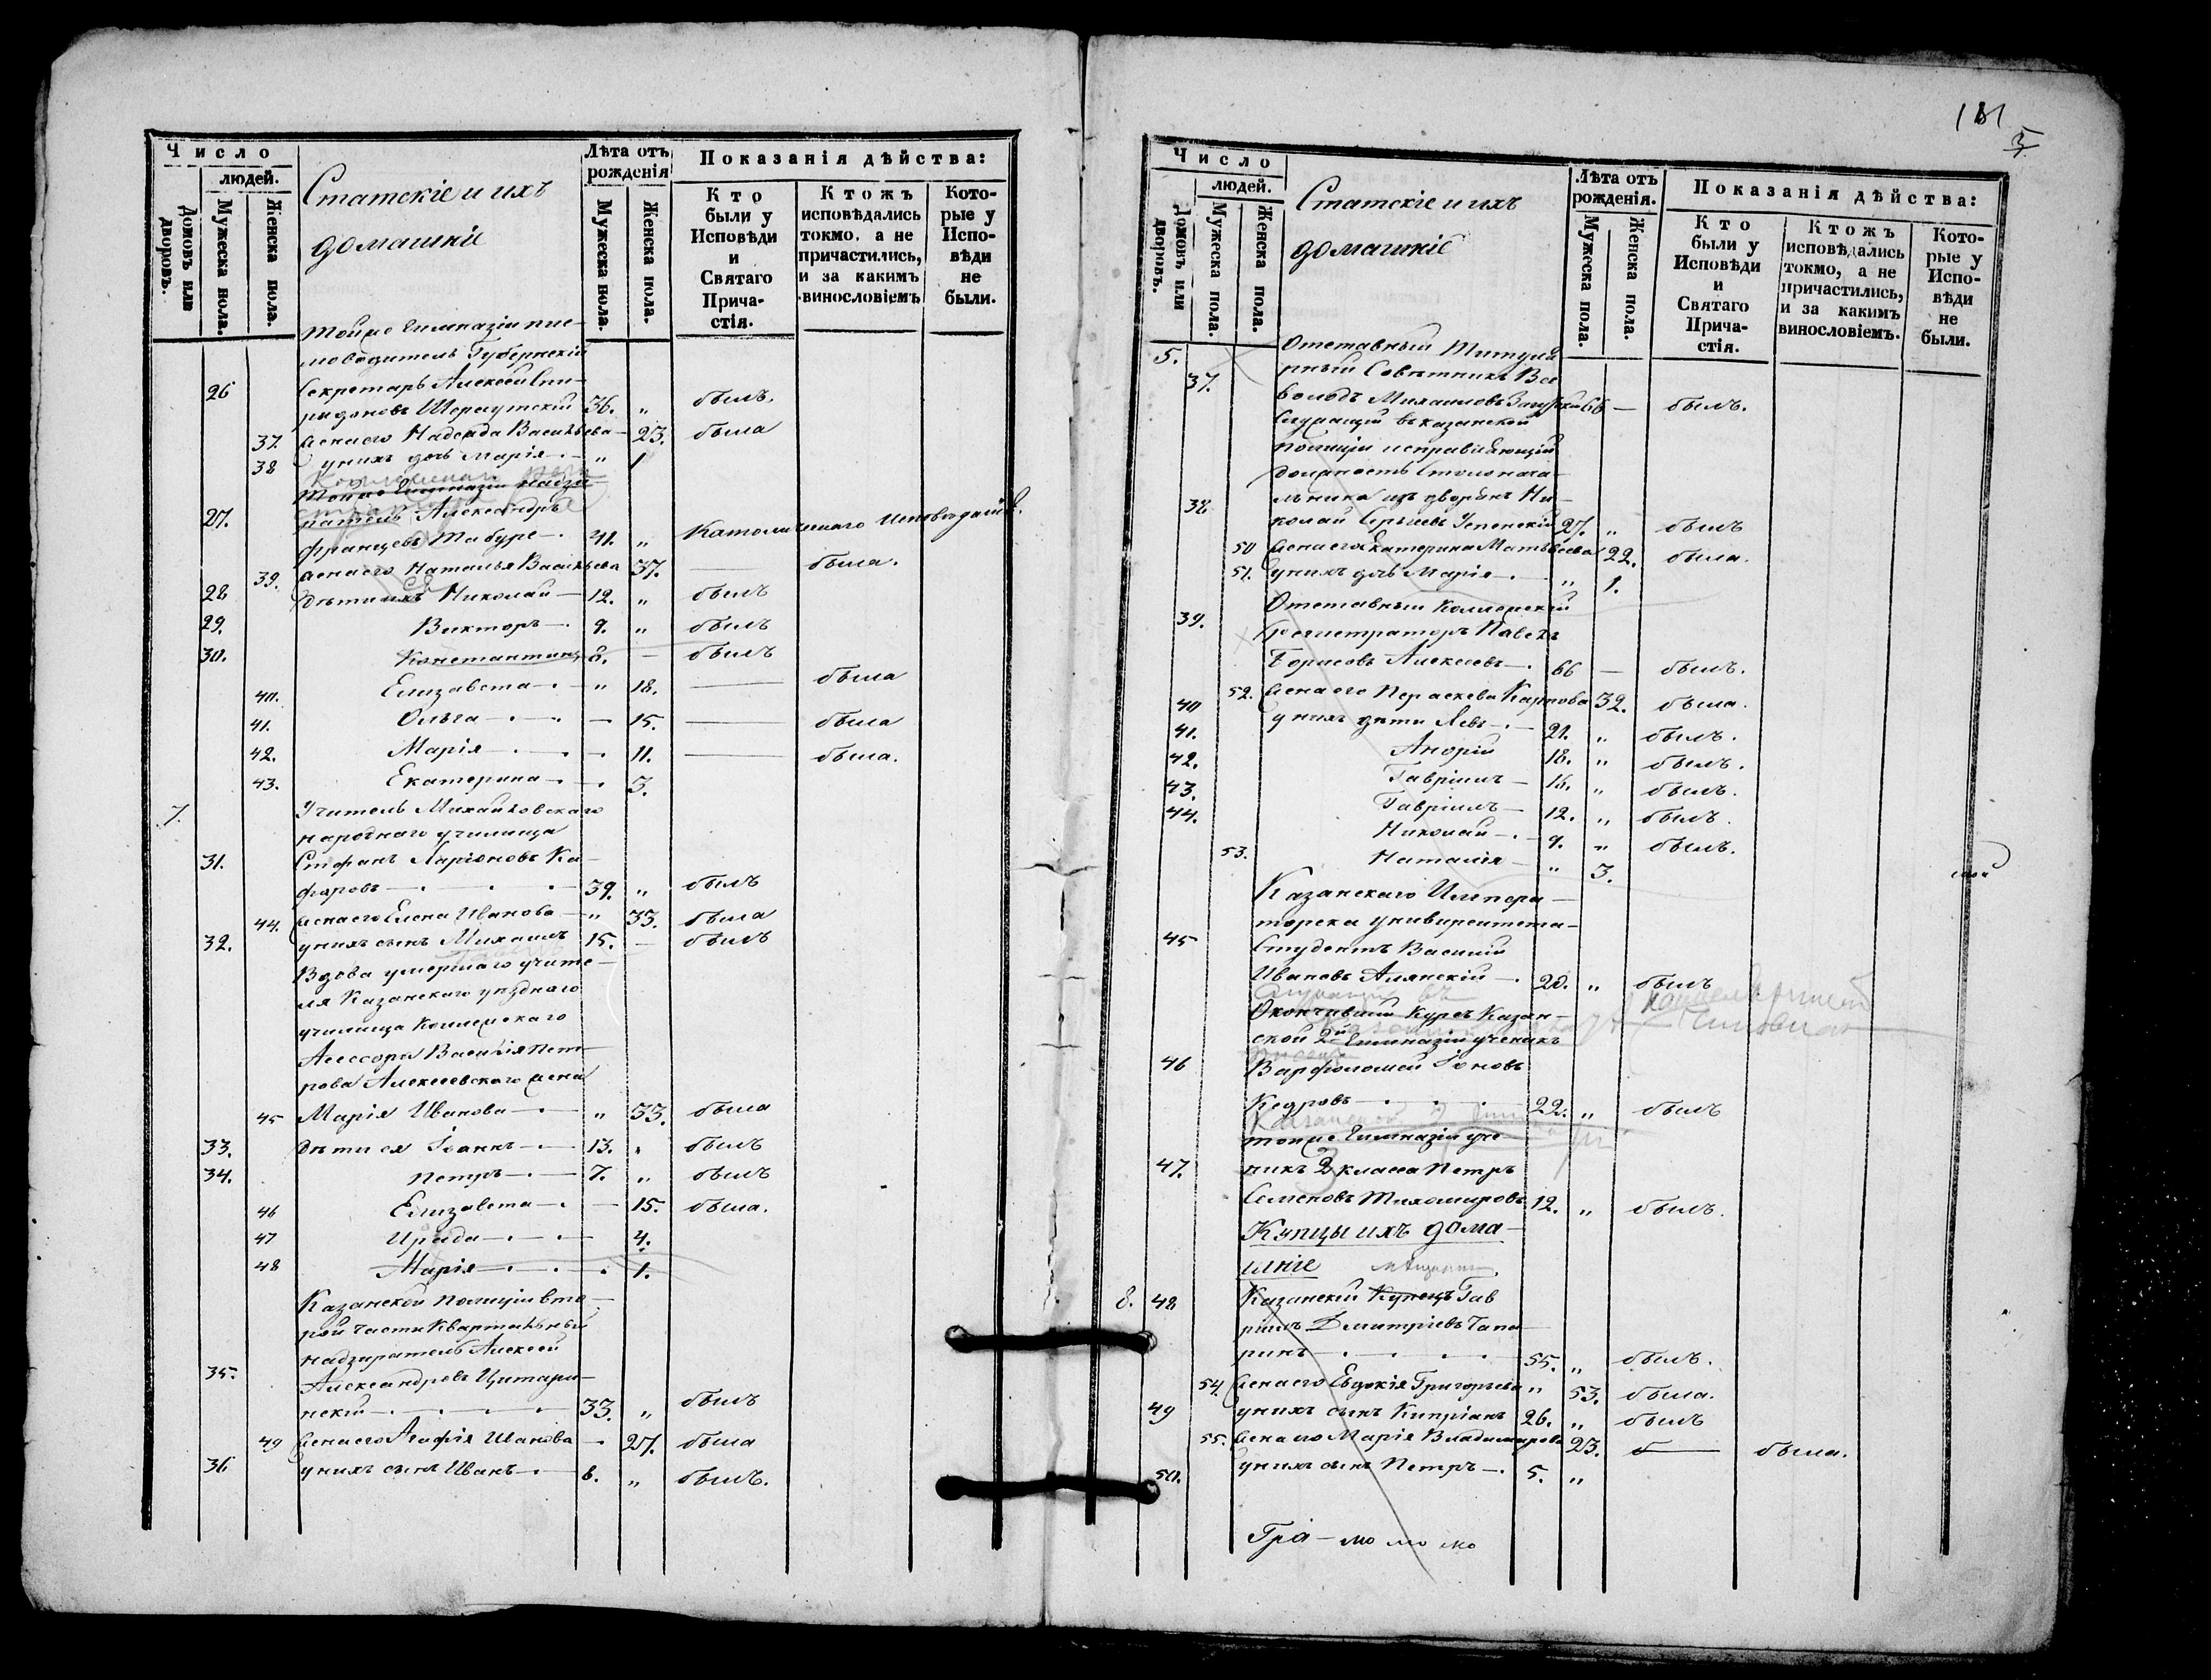 Число
людей.
Домовъ или дворовъ.
Мужеска пола.
Женска пола.
Статскіе и ихъ
домашніе
Лѣта отъ рожденія
Мужеска пола.
Женска пола.
Показанія дѣйства:
Кто были у Исповѣди и Святаго Причастія.
Ктожъ исповѣдались токмо, а не причастились, и за какимъ винословіемъ
Которые у Исповѣди не были.
Тойже Гимназіи пис-
моводитель Губернскій
26 Секретарь Алексей Спи-
ридоновъ 36. „ былъ.
37. жена его Надежда Васильева — 23. была
38 у нихъ дочь Марія — „ 1
Тойже Гимназіи надзи-
27. ратель Александръ
Францевъ Табуре — 41. „ Католическаго Исповѣданія.
39. жена его Наталья Васильева 37. — была.
28 дѣти ихъ Николай — 12. „ былъ
29. Викторъ — 9. „ былъ
30. Константинъ 8. — былъ
40. Елизавета — „ 18. — была
41. Ольга — 15. — была
42. Марія — 11. — была.
43. Екатерина — 3.
7. Учитель Михайловскаго
народнаго училища
31. Стефанъ Ларіоновъ Ка-
фаровъ — 39. „ былъ
44. жена его Елена Иванова — „ 33. была
32. у нихъ сынъ Михаилъ 15. — былъ
Вдова умершаго учите-
ля Казанскаго уѣзднаго
училища Коллежскаго
Асессора Василія Пет-
рова Алексеевскаго жена
45 Марія Иванова — „ 33. была
33. дѣти ея Іоаннъ — 13. „ былъ
34. Петръ — 7. „ былъ
46 Елизавета — 15. была.
47 Ираида — 4.
48 Марія — 1.
Казанской Полиціи вто-
рой части Квартальный
надзиратель Алексей
35. Александровъ Цитари-
нскій — 33. „ былъ
49 жена его Агафія Иванова — 27. была
36 у нихъ сынъ Иванъ — 8. „ былъ.
181
Число
людей.
Домовъ или дворовъ.
Мужеска пола.
Женска пола.
Статскіе и ихъ
домашніе
Лѣта отъ рожденія.
Мужеска пола.
Женска пола.
Показанія дѣйства:
Кто были у Исповѣди и Святаго Причастія.
Ктожъ исповѣдались токмо, а не причастились, и за какимъ винословіемъ.
Которые у Исповѣди не были.
5. Отставный Титуля
37. рный Совѣтникъ Все
володъ Михаиловъ 66 — былъ.
Служащій въ казанской
полиціи исправляющій
должность Столонача-
38 льника изъ дворянъ Ни-
колай 27. „ былъ
50 жена его Екатерина Матвѣева 22. была.
51. у нихъ дочь Марія — „ 1.
Отставный Коллежскій
39. Регистраторъ Павелъ
Борисовъ Алексеевъ — 66 — былъ.
52. жена его Параскева Карпова 32. была.
40 у нихъ дѣти Левъ — 21. „ былъ.
41. Андрій 18. „ былъ.
42. Гавріилъ — 16. „ былъ.
43. Гавріилъ — 12. „ былъ.
44. Николай — 9. „ былъ.
53. Наталія — „ 3.
Казанскаго Импера-
торска университета
45 Студентъ Василій
Ивановъ Алянскій — 20. „ былъ
Служащій въ
Окончившій Курсъ Казан-
ской 2й Гимназіи ученикъ
46 Варфоломей Іоновъ
Кедровъ — 22. „ былъ
Казанской 2
тойже Гимназіи уче-
47. никъ 2 класса Петръ
Семеновъ Тихомировъ 12. „ былъ.
Купцы ихъ дома-
шніе
8. 48 Казанскій Купецъ Гав
ріилъ Дмитріевъ Чапа
ринъ — 55. „ былъ.
54. жена его Евдокія Григорьева „ 53. была.
49 у нихъ сынъ Кипріанъ 26. „ былъ
55. жена его Марія Владимирова 23. была.
50. у нихъ сынъ Петръ — 5. „